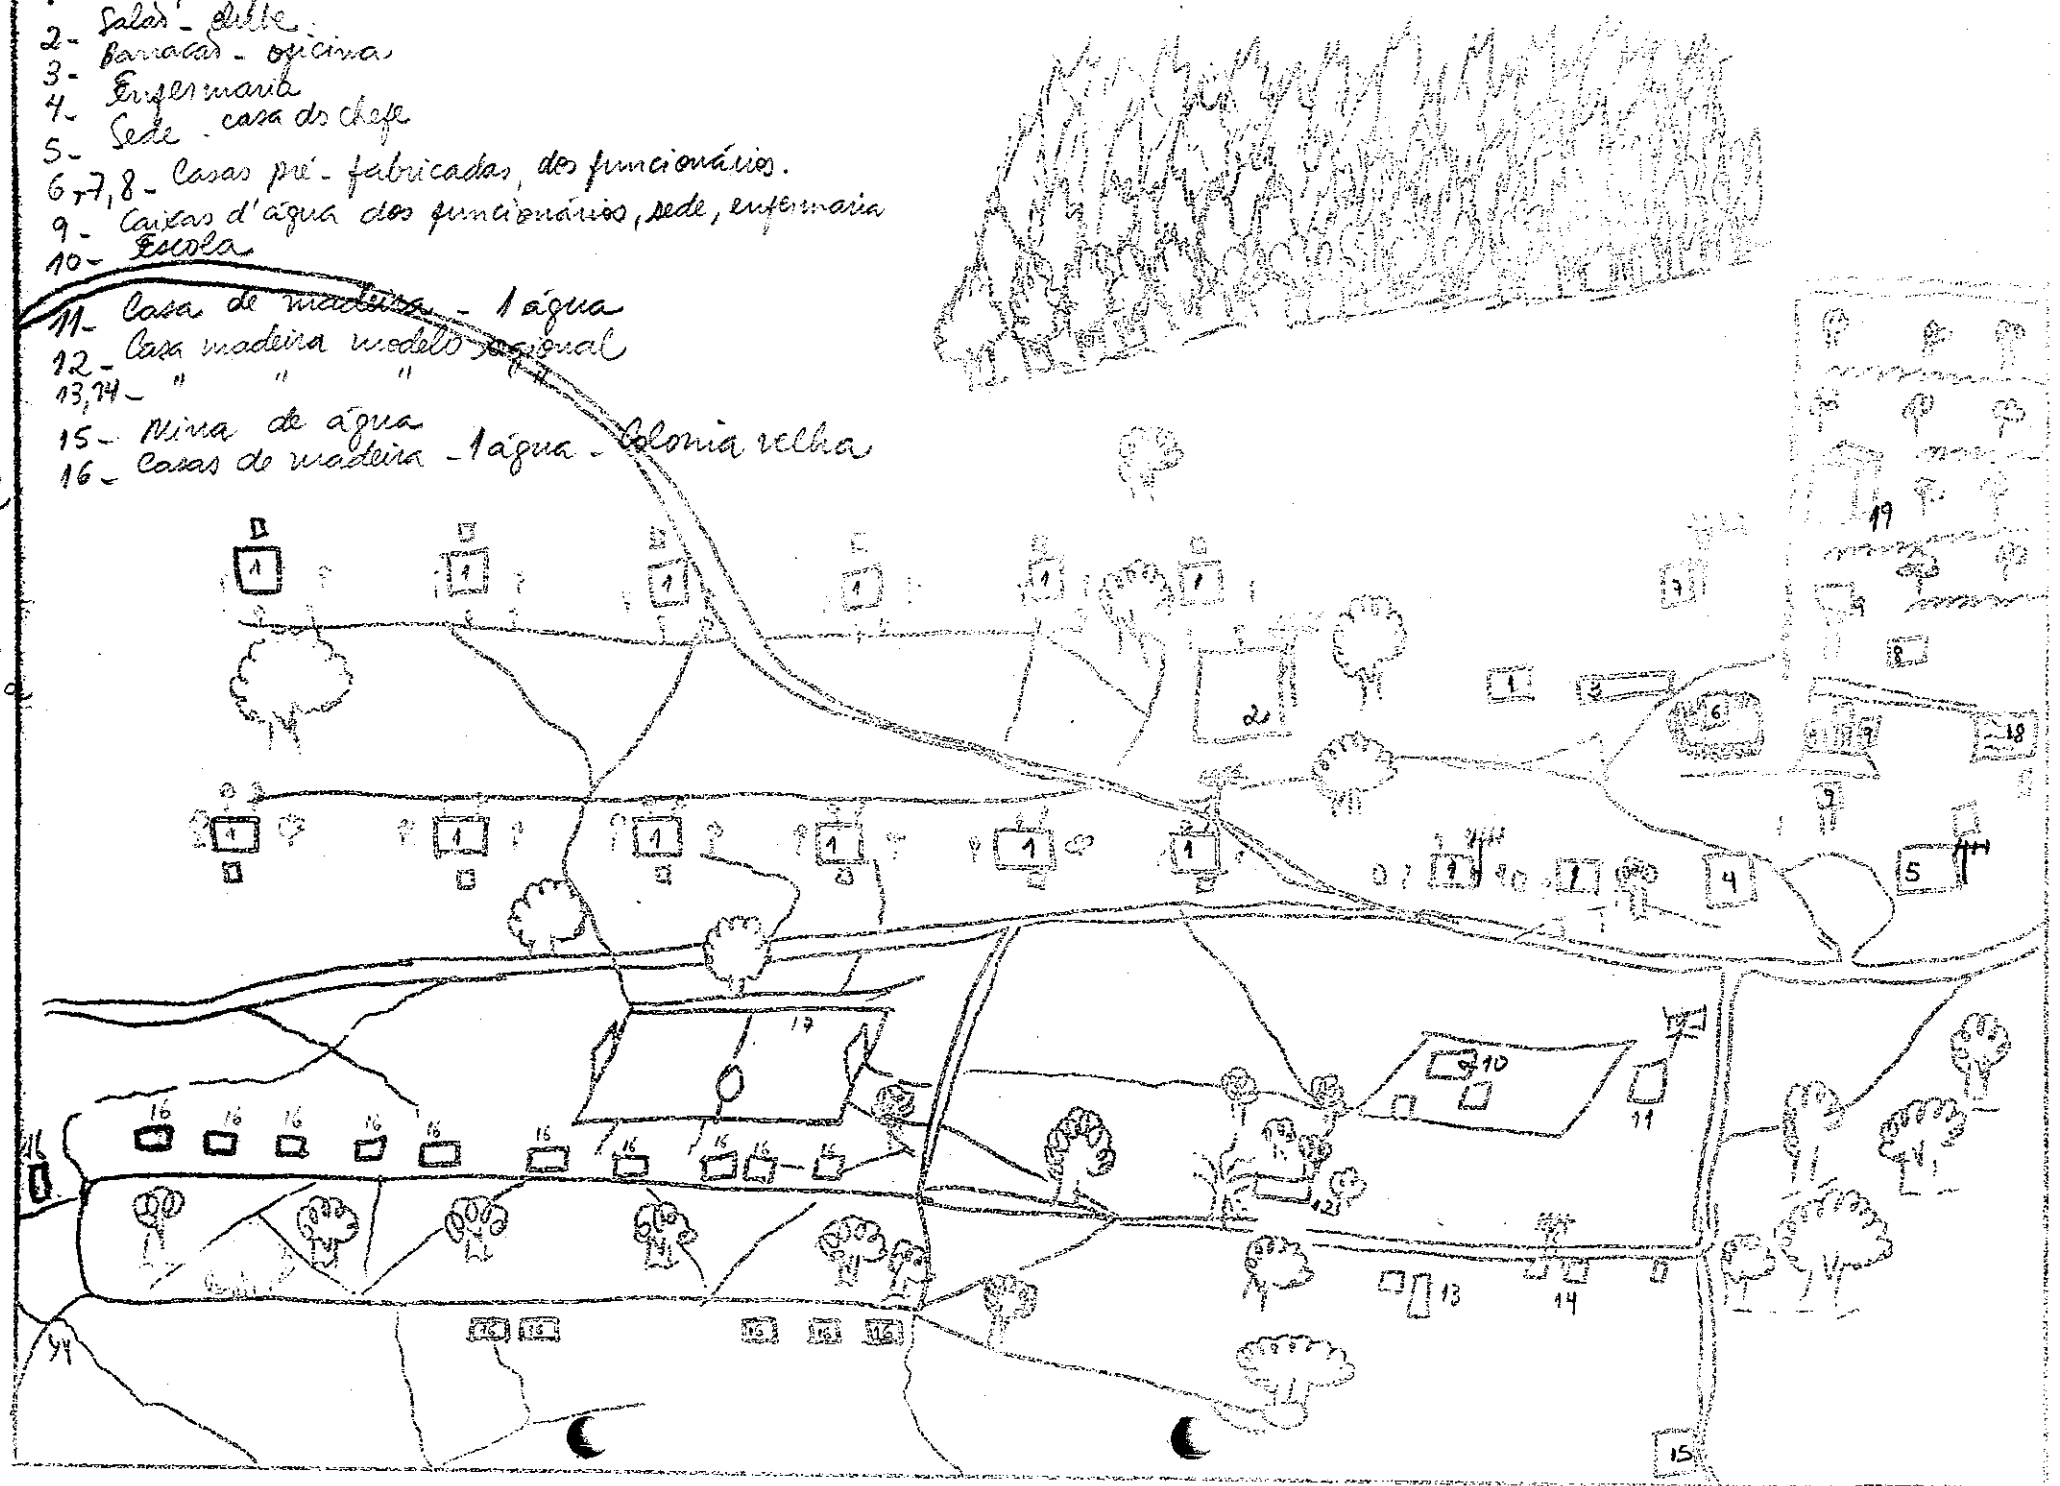 2- Salão - clube
3- Barracão - oficina
4- Enfermaria
5- Sede - casa do chefe
6,7,8- Casas pré-fabricadas, dos funcionários.
9- Caixas d'água dos funcionários, sede, enfermaria
10- Escola
11- Casa de madeira - 1 água
12- Casa madeira modelo regional
13,14- " " " "
15- Mina de água
16- Casas de madeira - 1 água - Colonia velha
19
1 1 1 1 1 1 7 9
8
2 1 3 6 9 18
9
1 1 1 1 1 1 1 1 4 5
17
10
11
16 16 16 16 16 16 16 16 16 16
16
12
13 14
16 16 16 16 16
15